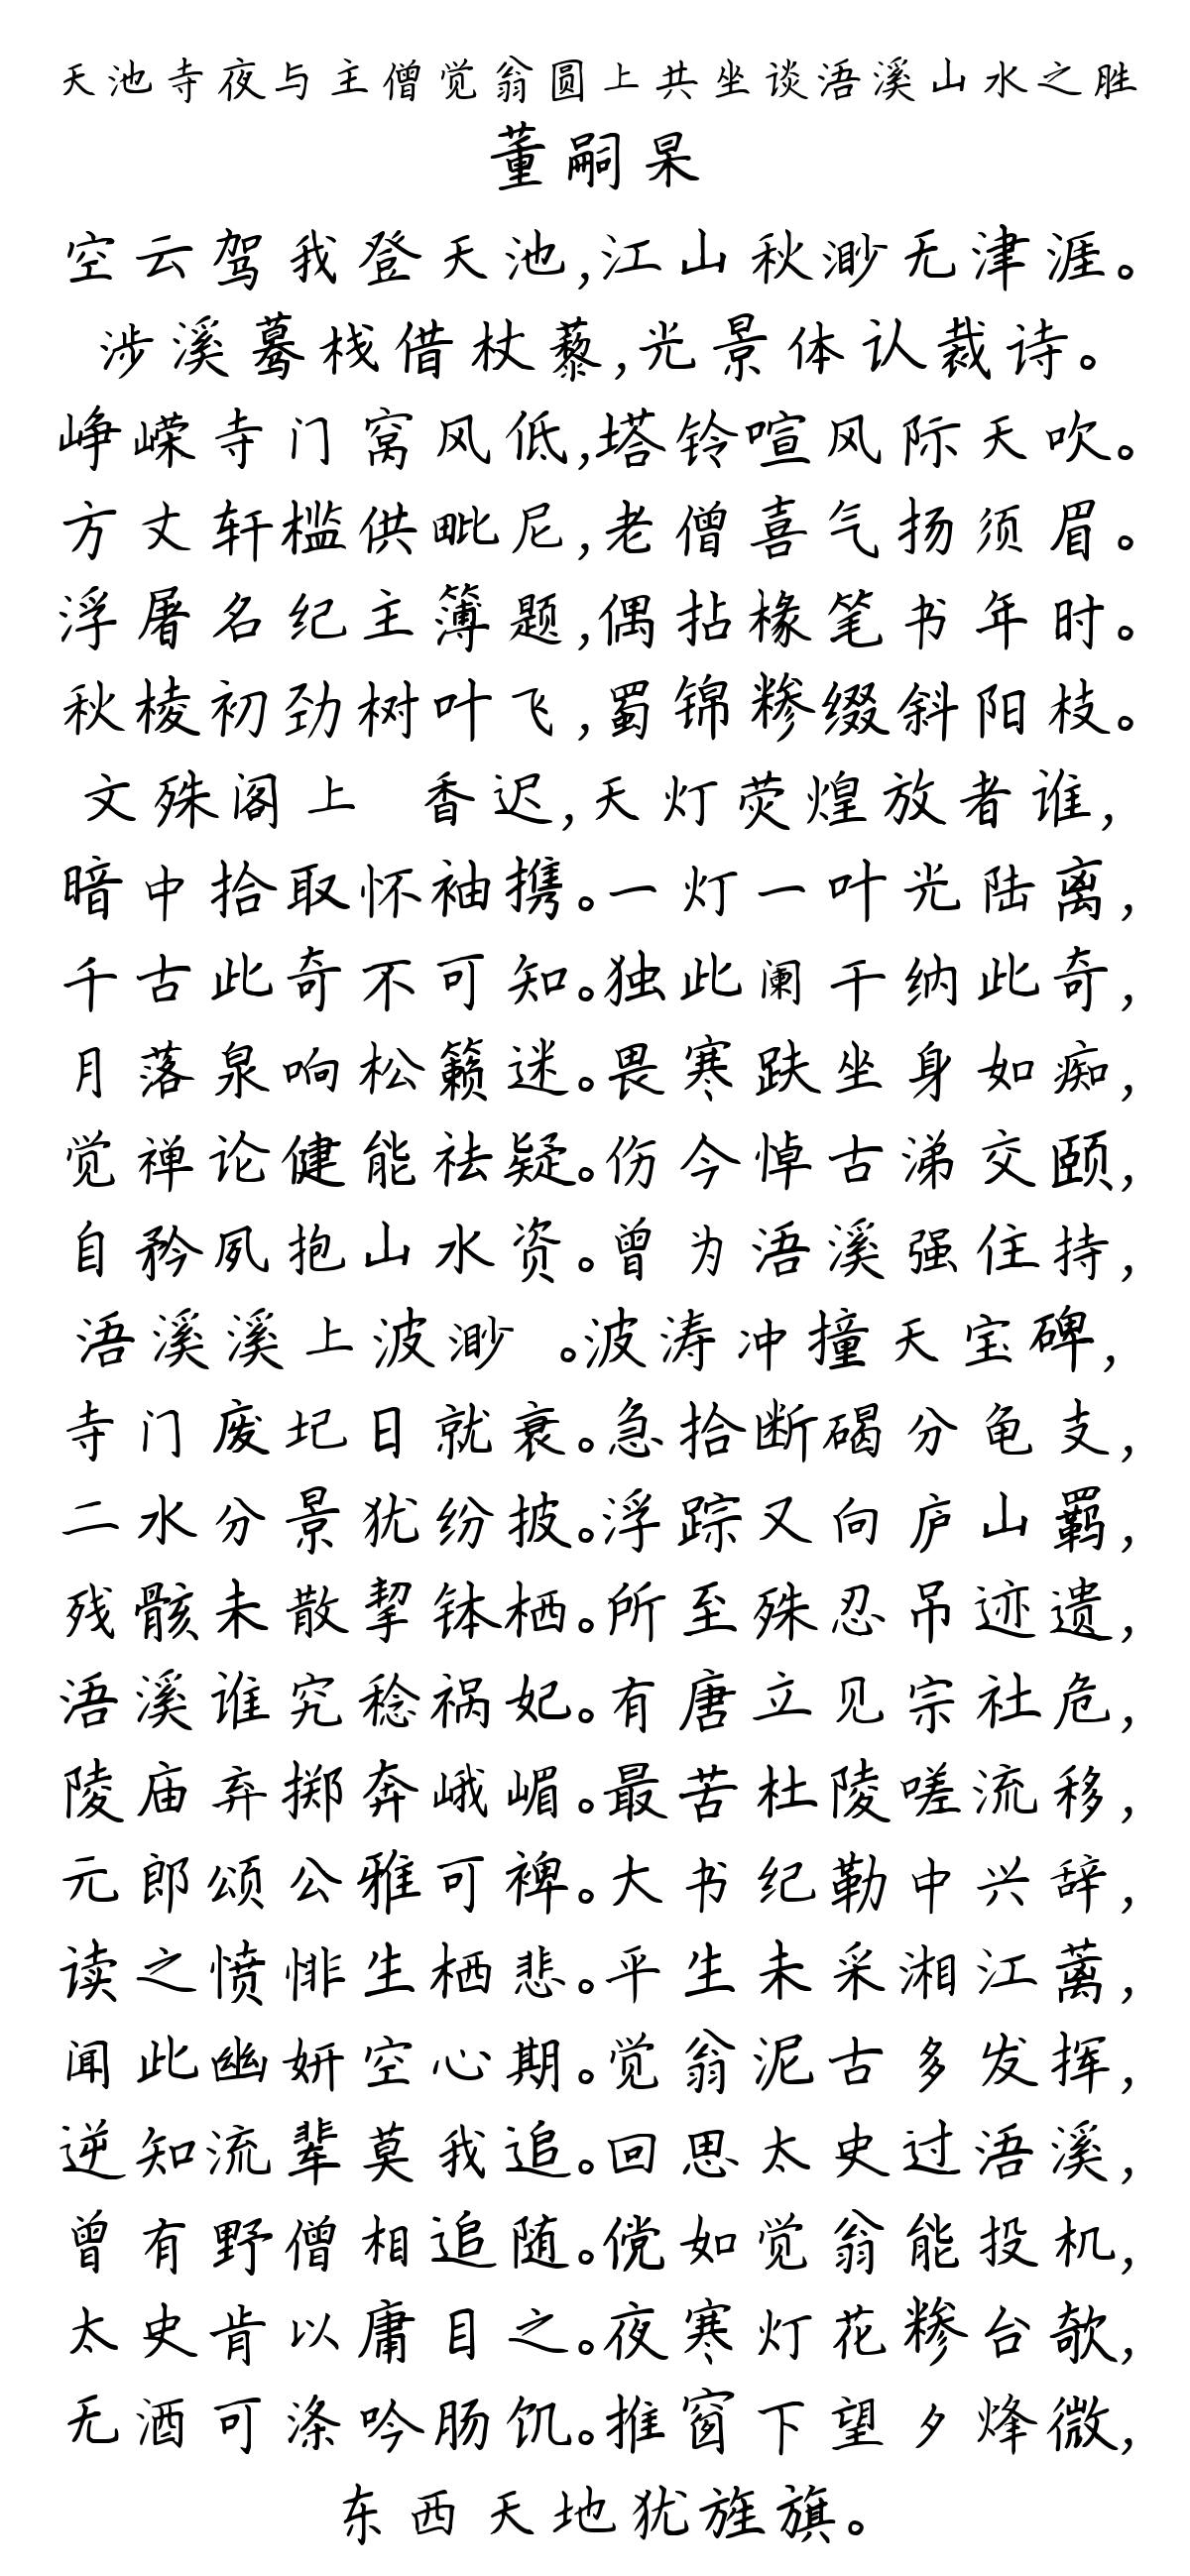 天池寺夜与主僧觉翁圆上共坐谈浯溪山水之胜
董嗣杲
空云驾我登天池,江山秋渺无津涯。
涉溪蓦栈借杖藜,光景体认裁诗。
峥嵘寺门窝风低,塔铃喧风际天吹。
方丈轩槛供毗尼,老僧喜气扬须眉。
浮屠名纪主簿题,偶拈椽笔书年时。
秋棱初劲树叶飞,蜀锦糁缀斜阳枝。
文殊阁上 香迟,天灯荧煌放者谁,
暗中拾取怀袖携。一灯一叶光陆离,
千古此奇不可知。独此阑干纳此奇,
月落泉响松籁迷。畏寒趺坐身如痴,
觉禅论健能祛疑。伤今悼古涕交颐,
自矜夙抱山水资。曾为浯溪强住持,
浯溪溪上波渺 。波涛冲撞天宝碑,
寺门废圮日就衰。急拾断碣分龟支,
二水分景犹纷披。浮踪又向庐山羁,
残骸未散挈钵栖。所至殊忍吊迹遗,
浯溪谁究稔祸妃。有唐立见宗社危,
陵庙弃掷奔峨嵋。最苦杜陵嗟流移,
元郎颂公雅可裨。大书纪勒中兴辞,
读之愤悱生栖悲。平生未采湘江蓠,
闻此幽妍空心期。觉翁泥古多发挥,
逆知流辈莫我追。回思太史过浯溪,
曾有野僧相追随。傥如觉翁能投机,
太史肯以庸目之。夜寒灯花糁台欹,
无酒可涤吟肠饥。推窗下望夕烽微,
东西天地犹旌旗。